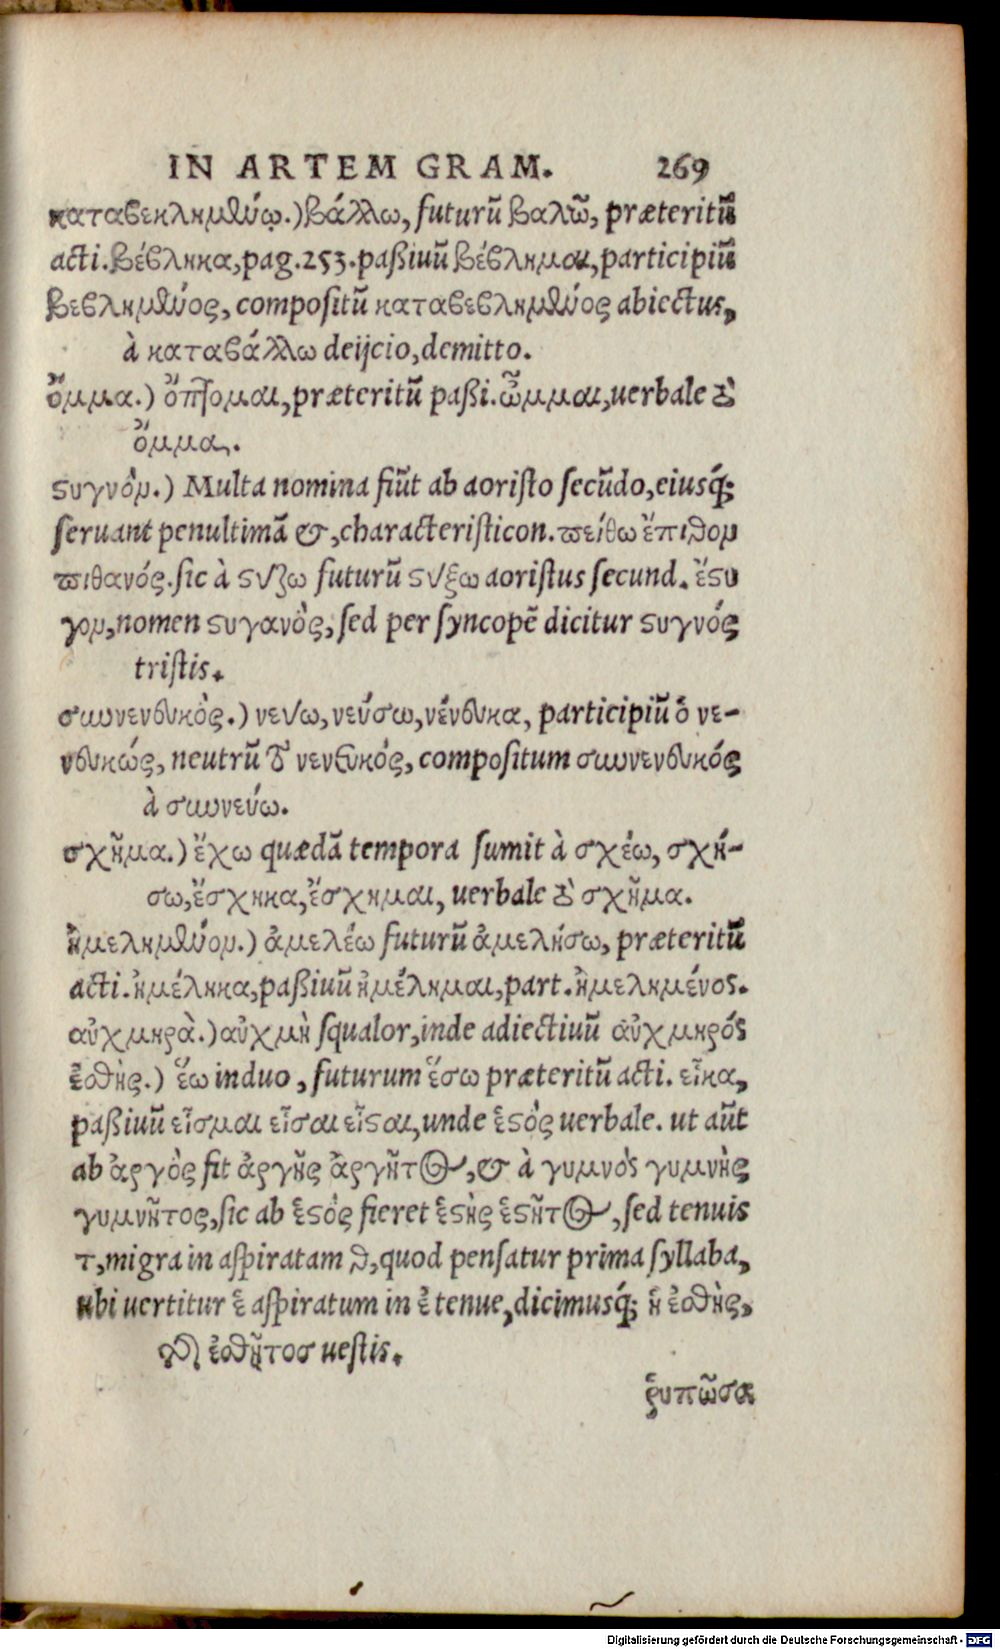 IN ARTEM GRAM. 269
καταβεκλημένῳ.) βάλλω, futurũ βαλῶ, præteritũ
acti. βέβληκα, pag. 253. paßiuũ βέβλημαι, participiũ
βεβλημένος, compositũ καταβεβλημένος abiectus,
à καταβάλλω deijcio, demitto.
ὄμμα.) ὄπτομαι, præteritũ paßi. ὦμμαι, uerbale τὸ
ὄμμα.
ϛυγνόν.) Multa nomina fiũt ab aoristo secũdo, eiusq́;
seruant penultimã &, characteristicon. πείθω ἔπιθον
πιθανός. sic à ϛύζω futurũ ϛύξω aoristus secund. ἔϛυ
γον, nomen ϛυγανὸς, sed per syncopẽ dicitur ϛυγνός
tristis.
συννενευκὸς.) νεύω, νεύσω, νένευκα, participiũ ὁ νε-
νευκώς, neutrũ τὸ νενευκός, compositum συννενευκός
à συννεύω.
σχῆμα.) ἔχω quædã tempora sumit à σχέω, σχή-
σω, ἔσχηκα, ἔσχημαι, uerbale τὸ σχῆμα.
ἠμελημένον.) ἀμελέω futurũ ἀμελήσω, præteritũ
acti. ἠμέληκα, paßiuũ ἠμέλημαι, part. ἠμελημένος.
αὐχμηρὰ.) αὐχμὴ squalor, inde adiectiuũ αὐχμηρός
ἐσθὴς.) ἕω induo, futurum ἕσω præteritũ acti. εἶκα,
paßiuũ εἶσμαι εἶσαι εἶϛαι, unde ἑϛὸς uerbale. ut aũt
ab ἀργὸς fit ἀργῆς ἀργῆτος, & à γυμνὸς γυμνὴς
γυμνῆτος, sic ab ἑϛὸς fieret ἑϛὴς ἑϛῆτος, sed tenuis
τ, migra in aspiratam θ, quod pensatur prima syllaba,
ubi uertitur ἑ aspiratum in ἐ tenue, dicimusq́; ἡ ἐσθὴς,
τῆς ἐσθῆτος uestis.
ῥυπῶσα
Digitalisierung gefördert durch die Deutsche Forschungsgemeinschaft - DFG